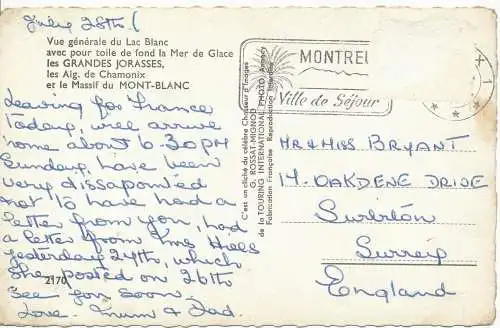 July 28th
Vue générale du Lac Blanc
avec pour toile de fond la Mer de Glace
les GRANDES JORASSES,
les Aig. de Chamonix
et le Massif du MONT-BLANC
Leaving for France
today, will arrive
home about 6.30PM
Sunday. have been
very dissapointed
not to have had a
letter from you, had
a letter from Mrs
yesterday 24th, which
she posted on 20th
See you soon.
Love. Mum & Dad.
2170
C'est un cliché du célèbre Chasseur d'Images
G. ROSSAT-MIGNOD
de la TOURING INTERNATIONAL PHOTO Agency
Fabrication Française Reproduction Interdite
MONTREU
Ville de Séjour
MR & MISS BRYANT
14. OAKDENE DRIVE
Surbiton
Surrey
England